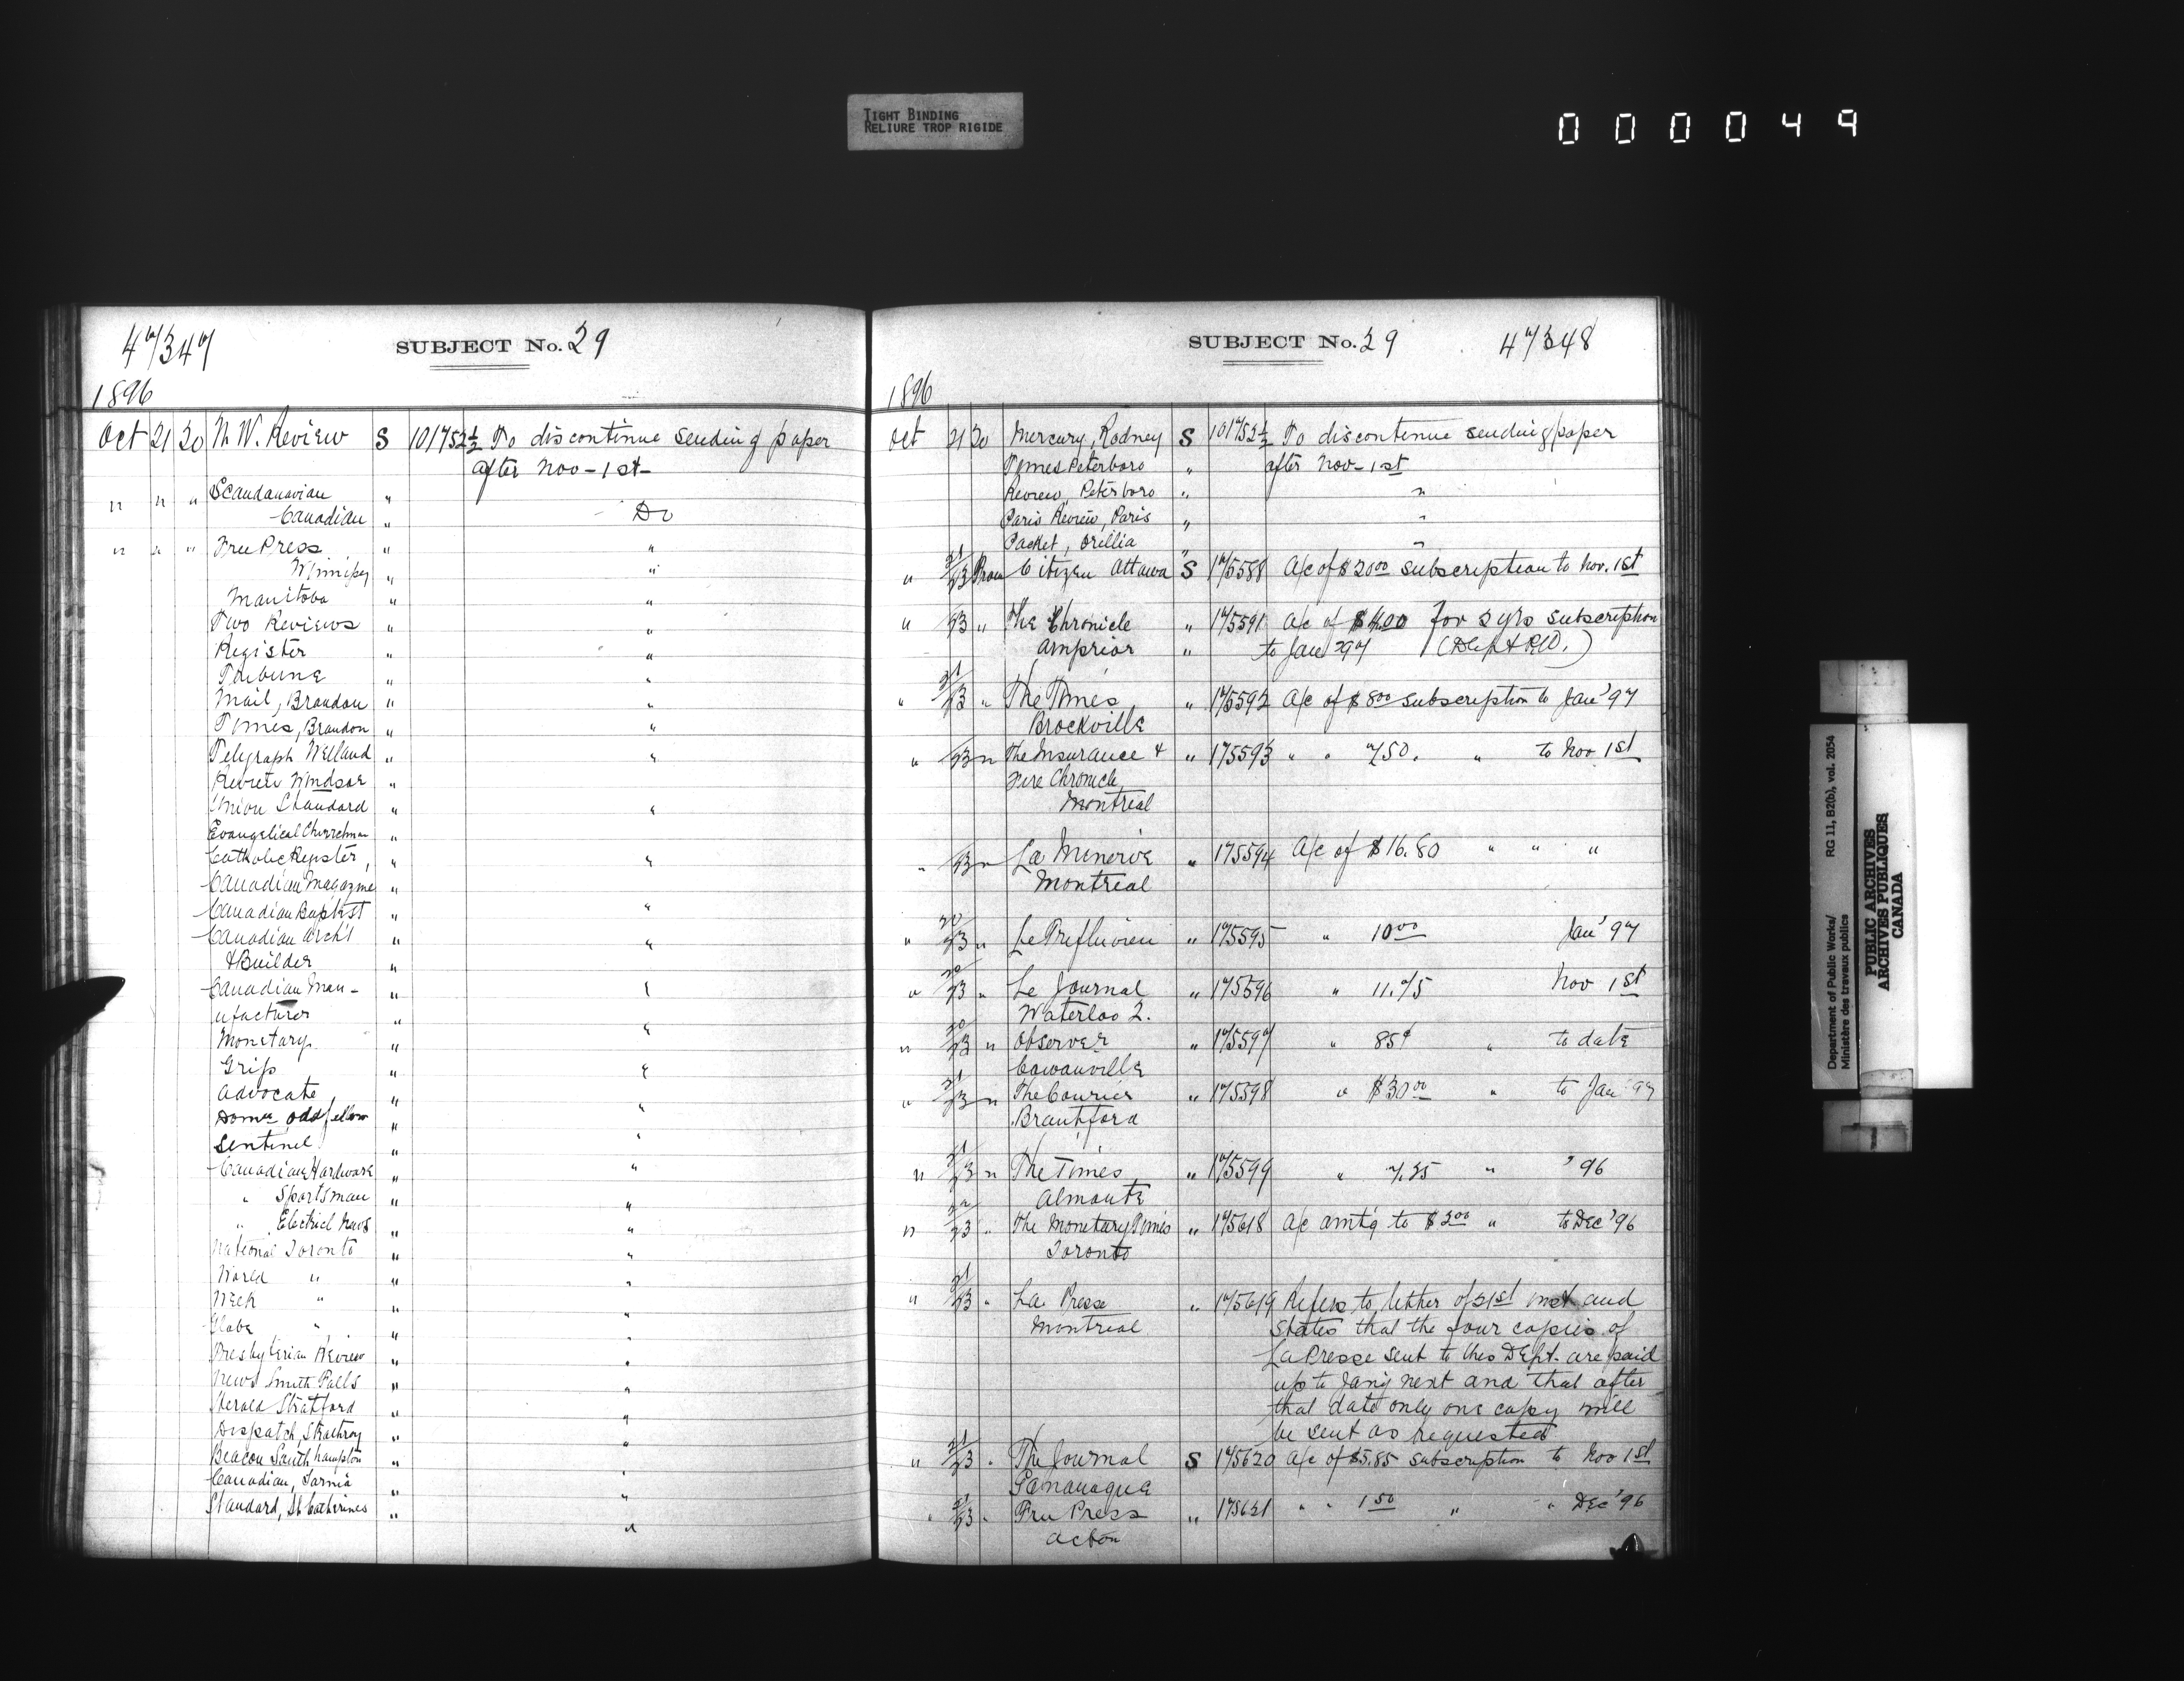 TIGHT BINDING
RELIURE TROP RIGIDE
000049
47347
SUBJECT No. 29
1896
Oct 21 20 N W. Review S 101752½ To discontinue sending paper
after Nov - 1st -
" " " Scandanavian "
Canadian " Do
" " " Free Press " "
Winnipeg " "
Manitoba " "
Two Reviews " "
Register " "
Tribune " "
Mail, Brandon " "
Times, Brandon " "
Telegraph Welland " "
Review Windsor "
Union Standard " "
Evangelical Churchman "
Catholic Register, " "
Canadian Magazine "
Canadian Baptist " "
Canadian Arch't " "
& Builder "
Canadian Man- " "
ufacturer " "
Monetary "
Grip " "
Advocate " "
Domn Oddfellow " "
Sentinel " "
Canadian Hardware " "
" Sportsman " "
" Electricl News " "
National Toronto " "
World " " "
Week " " "
Globe " " "
Presbyterian Review " "
News Smith Falls " "
Herald Stratford " "
Dispatch, Strathroy " "
Beacon Southhampton " "
Canadian, Sarnia " "
Standard, St Catherines " "
SUBJECT No. 29 47348
1896
Oct 21 20 Mercury, Rodney S 101752½ To discontinue sending paper
Times Peterboro " after Nov - 1st
Review, Peterboro " "
Paris Review, Paris " "
Packet, Orillia " "
" 21/23 From Citizen Ottawa S 175588 A/c of $20.00 subscription to Nov. 1st
" 23 " The Chronicle " 175591 A/c of $4.00 for 2 yrs subscription
Arnprior " to Jany 97 (Dept R&C.)
" 21/23 " The Times " 175592 A/c of $8.00 subscription to Jan' 97
Brockville
" 23 " The Insurance & " 175593 " " 7.50. " to Nov 1st
Fire Chronicle
Montreal
" 23 " La Minerve " 175594 A/c of $16.80 " " "
Montreal
" 20/23 " Le Trifluvien " 175595 " 10.00 Jan' 97
" 20/23 " Le Journal " 175596 " 11.75 Nov 1st
Waterloo Q.
" 20/23 " Observer " 175597 " 85¢ " to date
Cowanville
" 21/23 " The Courier " 175598 " $30.00 " to Jan' 97
Brantford
" 21/23 " The Times " 175599 " 7.35 " '96
Almonte
" 22/23 " The Monetary Times " 175618 A/c amt'g to $2.00 " to Dec '96
Toronto
" 21/23 " La Presse " 175619 Refers to letter of 21st inst and
Montreal states that the four copies of
La Presse sent to this Dept. are paid
up to Jan'y next and that after
that date only one copy will
be sent as requested
" 21/23 " The Journal S 175620 A/c of $5.85 subscription to Nov 1st
Gananaque
" 21/23 " Free Press " 175621 " " 1.50 " " Dec '96
Acton
Department of Public Works/
Ministère des travaux publics
RG 11, B2(b), vol. 2054
PUBLIC ARCHIVES
ARCHIVES PUBLIQUES
CANADA